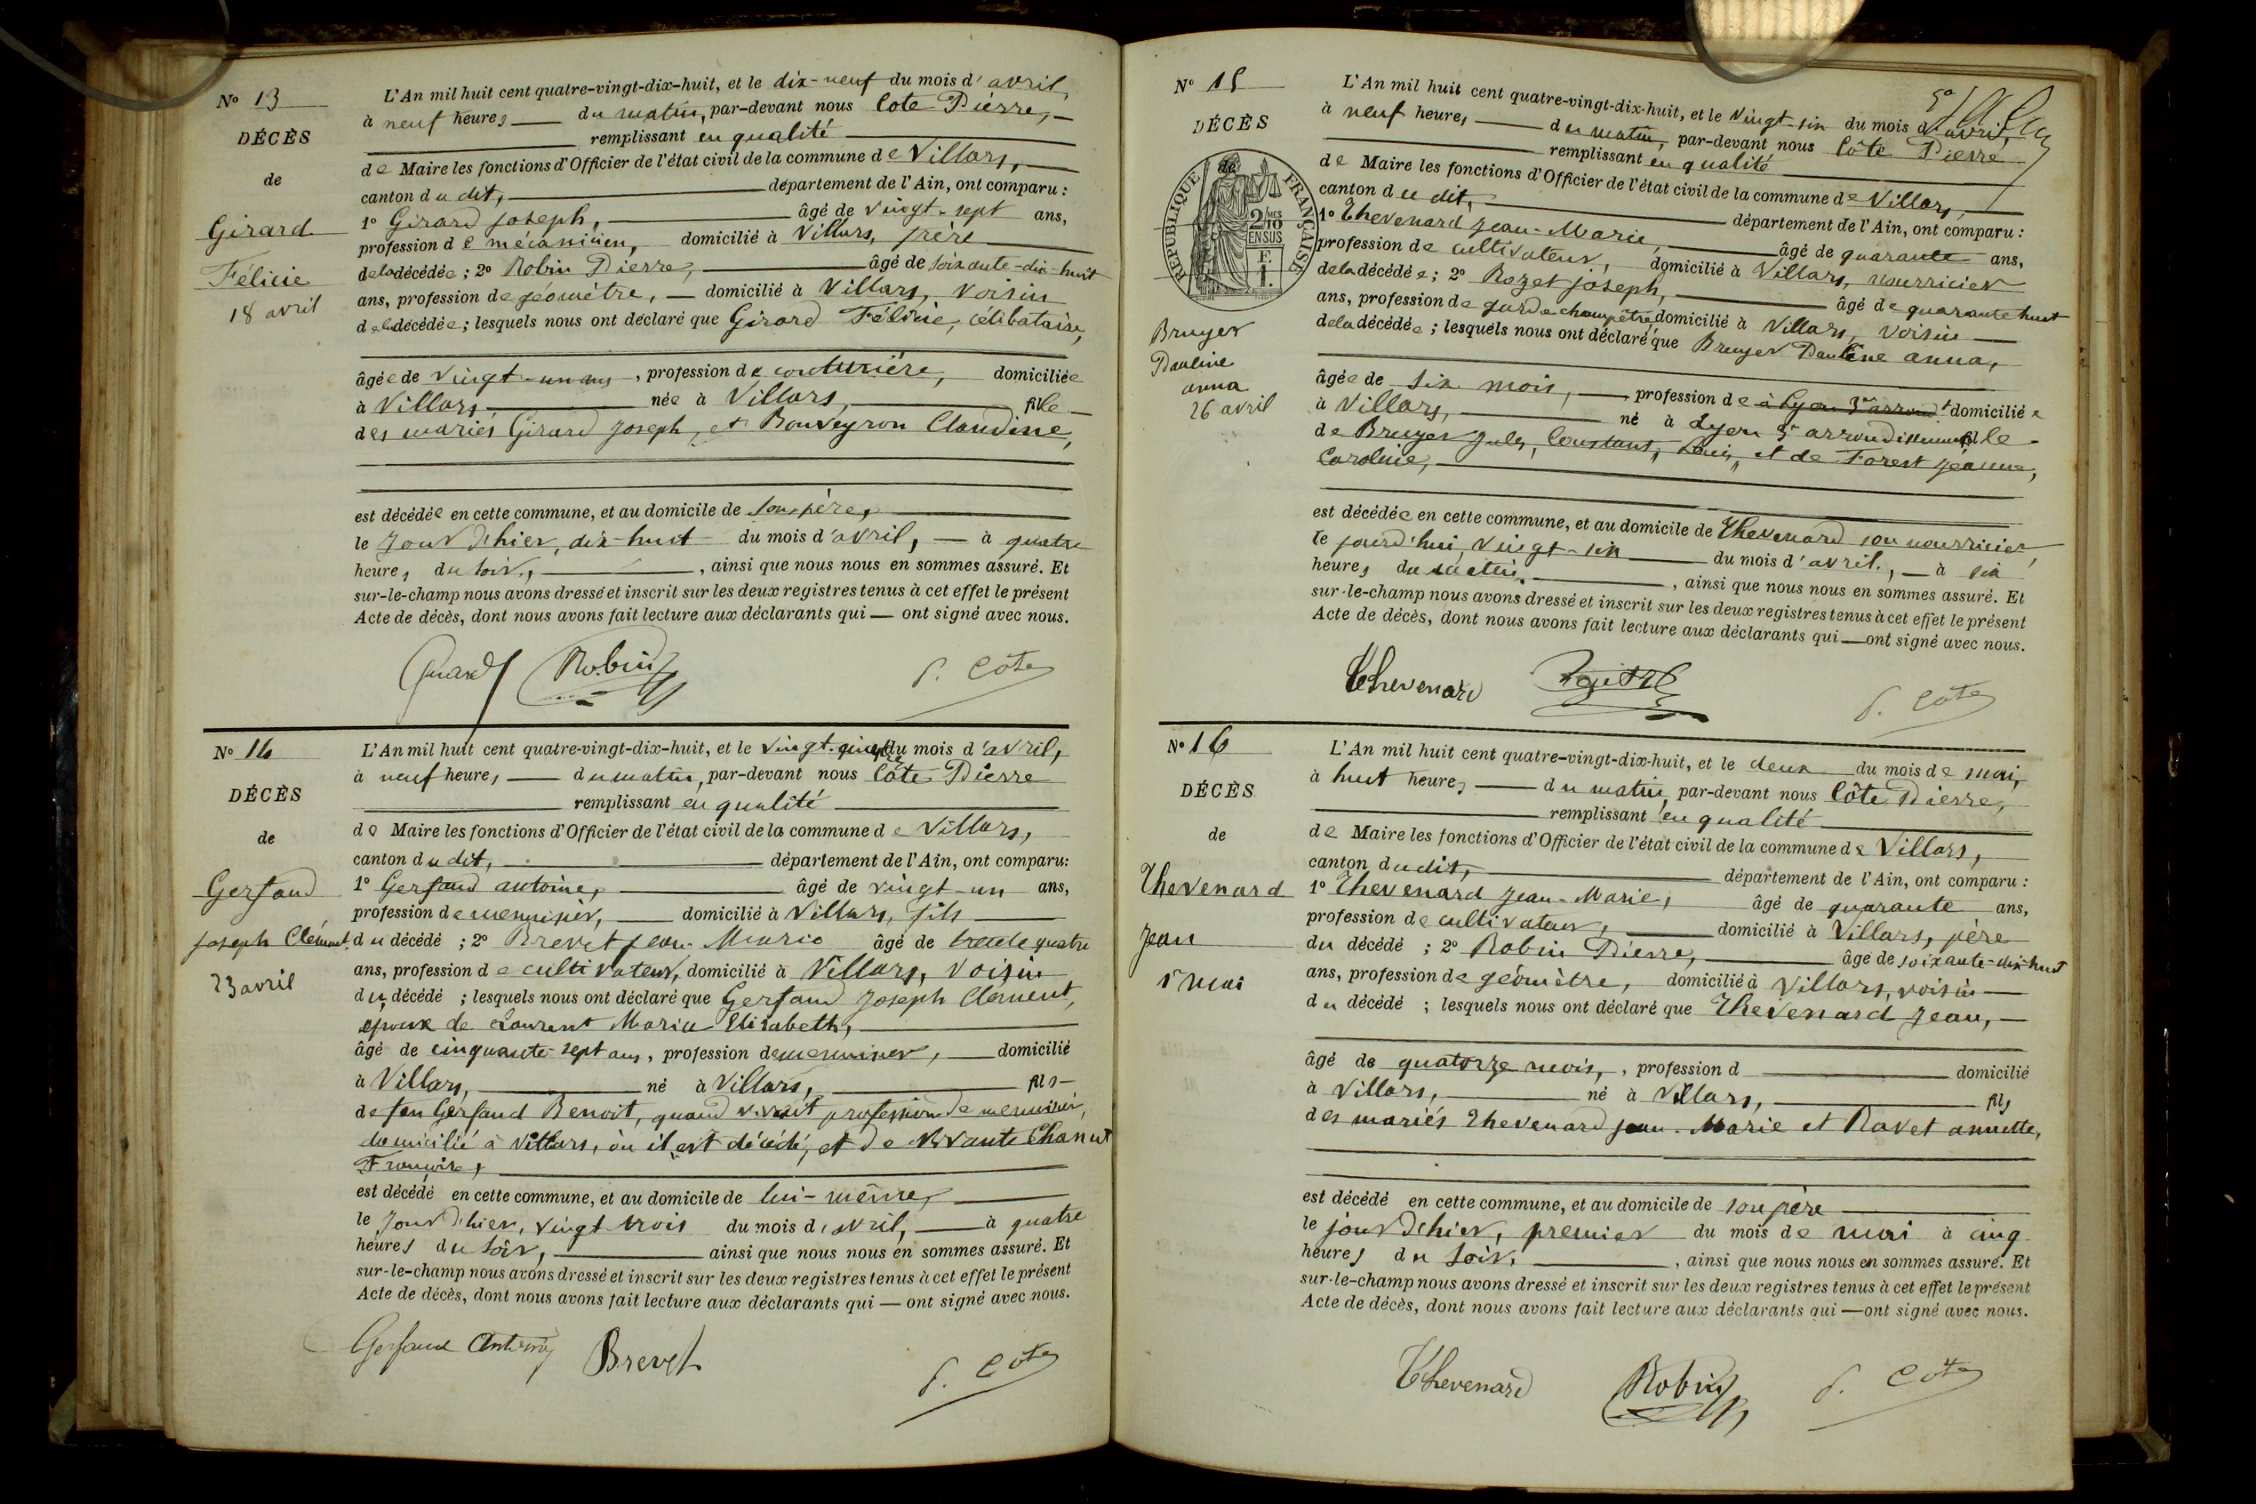 N° 13
DÉCÈS
de
Girard
Félicie
18 avril
L'An mil huit cent quatre-vingt-dix-huit, et le dix-neuf du mois d'avril,
à neuf heures du matin, par-devant nous Côte Pierre,
remplissant en qualité
de Maire les fonctions d'Officier de l'état civil de la commune de Villars,
canton du dit, département de l'Ain, ont comparu :
1° Girard Joseph, âgé de vingt-sept ans,
profession de mécanicien, domicilié à Villars, frère
de la décédée ; 2° Robin Pierre, âgé de soixante-dix-huit
ans, profession de géomètre, domicilié à Villars, voisin
de la décédée ; lesquels nous ont déclaré que Girard Félicie, célibataire,
âgée de vingt-un ans, profession de couturière, domiciliée
à Villars, née à Villars, fille
des mariés Girard Joseph, et Bouveyron Claudine,
est décédée en cette commune, et au domicile de son père,
le jour d'hier, dix-huit du mois d'avril, à quatre
heures du soir, ainsi que nous nous en sommes assuré. Et
sur-le-champ nous avons dressé et inscrit sur les deux registres tenus à cet effet le présent
Acte de décès, dont nous avons fait lecture aux déclarants qui ont signé avec nous.
Girard Robin P. Côte
N° 14
DÉCÈS
de
Gerfaud
Joseph Clément
23 avril
L'An mil huit cent quatre-vingt-dix-huit, et le vingt-quatre du mois d'avril,
à neuf heures du matin, par-devant nous Côte Pierre
remplissant en qualité
de Maire les fonctions d'Officier de l'état civil de la commune de Villars,
canton du dit, département de l'Ain, ont comparu:
1° Gerfaud antoine, âgé de vingt-un ans,
profession de menuisier, domicilié à Villars, fils
du décédé ; 2° Brevet Jean-Marie âgé de trente quatre
ans, profession de cultivateur, domicilié à Villars, voisin
du décédé ; lesquels nous ont déclaré que Gerfaud Joseph Clément,
époux de Laurent Maria Elisabeth,
âgé de cinquante-sept ans, profession de menuisier, domicilié
à Villars, né à Villars, fils
de feu Gerfaud Benoit, quand vivait profession de menuisier,
domicilié à Villars, où il est décédé, et de vivante Chanut
Françoise,
est décédé en cette commune, et au domicile de lui-même,
le jour d'hier, vingt trois du mois d'avril, à quatre
heures du soir, ainsi que nous nous en sommes assuré. Et
sur-le-champ nous avons dressé et inscrit sur les deux registres tenus à cet effet le présent
Acte de décès, dont nous avons fait lecture aux déclarants qui ont signé avec nous.
Gerfaud Antoine Brevet P. Côte
N° 15
DÉCÈS
de
RÉPUBLIQUE FRANÇAISE
2/10 EN SUS
Bruyer
Pauline
anna
26 avril
L'An mil huit cent quatre-vingt-dix-huit, et le vingt-six du mois d'avril,
à neuf heures du matin, par-devant nous Côte Pierre
remplissant en qualité
de Maire les fonctions d'Officier de l'état civil de la commune de Villars,
canton du dit, département de l'Ain, ont comparu :
1° Thevenard Jean-Marie, âgé de quarante ans,
profession de cultivateur, domicilié à Villars, nourricier
de la décédée ; 2° Rozet Joseph, âgé de quarante huit
ans, profession de garde champêtre, domicilié à Villars, voisin
de la décédée ; lesquels nous ont déclaré que Bruyer Pauline anna,
âgée de six mois, profession de à Lyon 5me arrondt domiciliée
à Villars, né à Lyon 5e arrondissement fille
de Bruyer Jules, Constant, Louis, et de Forest Jeanne,
Caroline,
est décédée en cette commune, et au domicile de Thevenard son nourricier,
le jourd'hui vingt-six du mois d'avril, à six
heures du matin, ainsi que nous nous en sommes assuré. Et
sur-le-champ nous avons dressé et inscrit sur les deux registres tenus à cet effet le présent
Acte de décès, dont nous avons fait lecture aux déclarants qui ont signé avec nous.
Thevenard P. Côte
N° 16
DÉCÈS
de
Thevenard
Jean
1er mai
L'An mil huit cent quatre-vingt-dix-huit, et le deux du mois de mai,
à huit heures du matin, par-devant nous Côte Pierre,
remplissant en qualité
de Maire les fonctions d'Officier de l'état civil de la commune de Villars,
canton du dit, département de l'Ain, ont comparu :
1° Thevenard Jean-Marie, âgé de quarante ans,
profession de cultivateur, domicilié à Villars, père
du décédé ; 2° Robin Pierre, âgé de soixante-dix-huit
ans, profession de géomètre, domicilié à Villars, voisin
du décédé ; lesquels nous ont déclaré que Thevenard Jean,
âgé de quatorze mois, profession d domicilié
à Villars, né à Villars, fils
des mariés Thevenard Jean-Marie et Ravet annette,
est décédé en cette commune, et au domicile de son père
le jour d'hier, premier du mois de mai à cinq
heures du soir, ainsi que nous nous en sommes assuré. Et
sur-le-champ nous avons dressé et inscrit sur les deux registres tenus à cet effet le présent
Acte de décès, dont nous avons fait lecture aux déclarants qui ont signé avec nous.
Thevenard Robin P. Côte